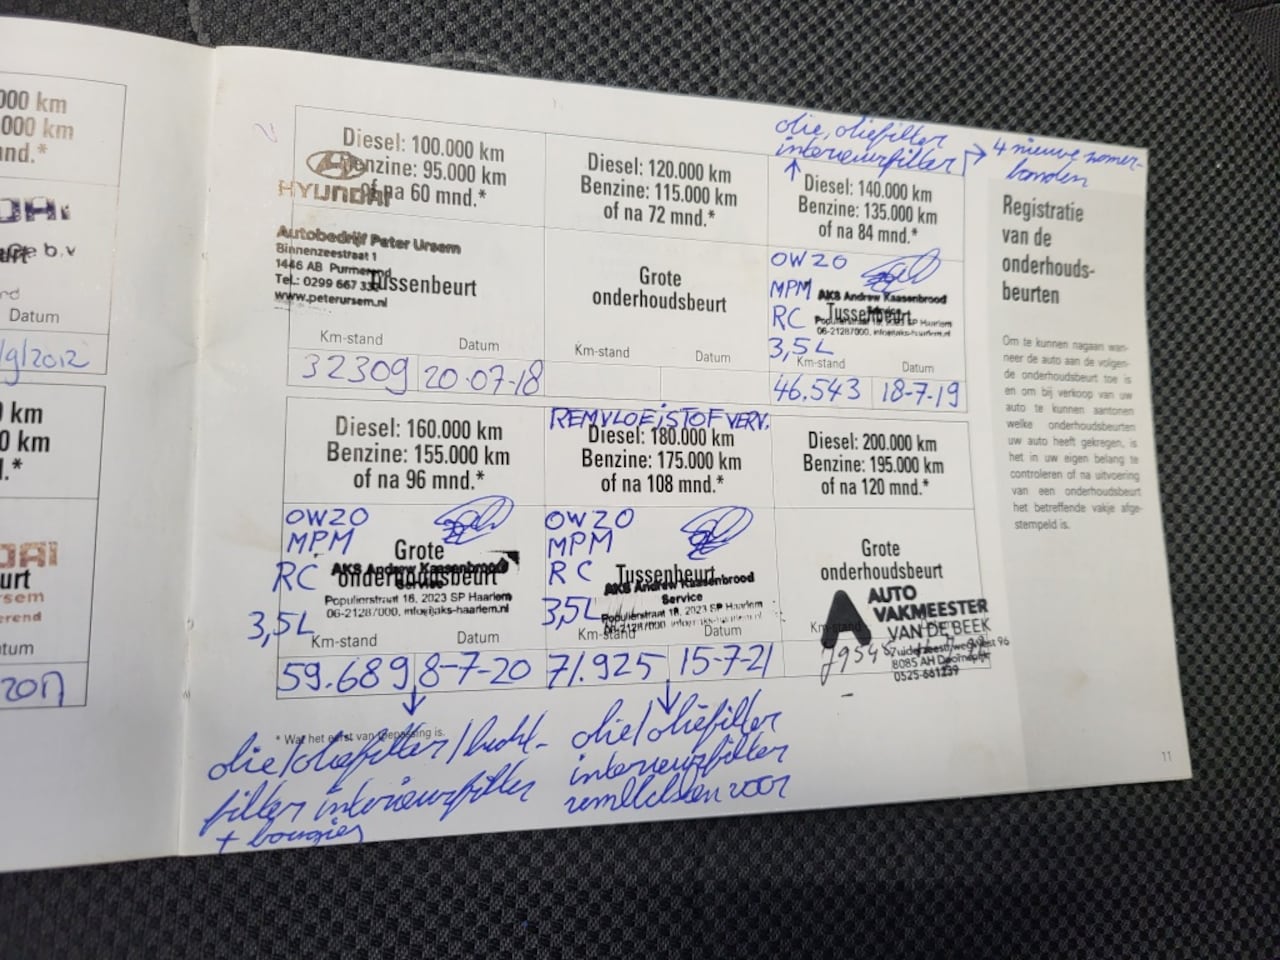 000 km
000 km
nd.*
Datum
/9/2012
0 km
0 km
.*
urt
sem
erend
tum
2017
olie, oliefilter
interieurfilter
4 nieuwe zomer-
banden
Diesel: 100.000 km
Benzine: 95.000 km
of na 60 mnd.*
HYUNDAI
Autobedrijf Peter Ursem
Binnenzeestraat 1
1446 AB Purmerend
Tel.: 0299 667 33
www.peterursem.nl
Tussenbeurt
Km-stand Datum
32309 20-07-18
Diesel: 120.000 km
Benzine: 115.000 km
of na 72 mnd.*
Grote
onderhoudsbeurt
Km-stand Datum
Diesel: 140.000 km
Benzine: 135.000 km
of na 84 mnd.*
OW20
MPM
RC
3,5L
AKS Andrew Kaasenbrood
Tussenbeurt
Populierstraat 16, 2023 SP Haarlem
06-21287000, info@aks-haarlem.nl
Km-stand Datum
46.543 18-7-19
Diesel: 160.000 km
Benzine: 155.000 km
of na 96 mnd.*
OW20
MPM
RC
3,5L
Grote
onderhoudsbeurt
AKS Andrew Kaasenbrood
Service
Populierstraat 16, 2023 SP Haarlem
06-21287000, info@aks-haarlem.nl
Km-stand Datum
59.689 8-7-20
REMVLOEISTOF VERV.
Diesel: 180.000 km
Benzine: 175.000 km
of na 108 mnd.*
OW20
MPM
RC
3,5L
Tussenbeurt
AKS Andrew Kaasenbrood
Service
Populierstraat 16, 2023 SP Haarlem
06-21287000
Km-stand Datum
71.925 15-7-21
Diesel: 200.000 km
Benzine: 195.000 km
of na 120 mnd.*
Grote
onderhoudsbeurt
AUTO
VAKMEESTER
VAN DE BEEK
Zuiderzeestraatweg West 96
8085 AH Doornspijk
0525-661239
* Wat het eerst van toepassing is.
olie/oliefilter/lucht-
filter interieurfilter
+ bougies
olie/oliefilter
interieurfilter
remblokken voor
Registratie
van de
onderhouds-
beurten
Om te kunnen nagaan wan-
neer de auto aan de volgen-
de onderhoudsbeurt toe is
en om bij verkoop van uw
auto te kunnen aantonen
welke onderhoudsbeurten
uw auto heeft gekregen, is
het in uw eigen belang te
controleren of na uitvoering
van een onderhoudsbeurt
het betreffende vakje afge-
stempeld is.
11